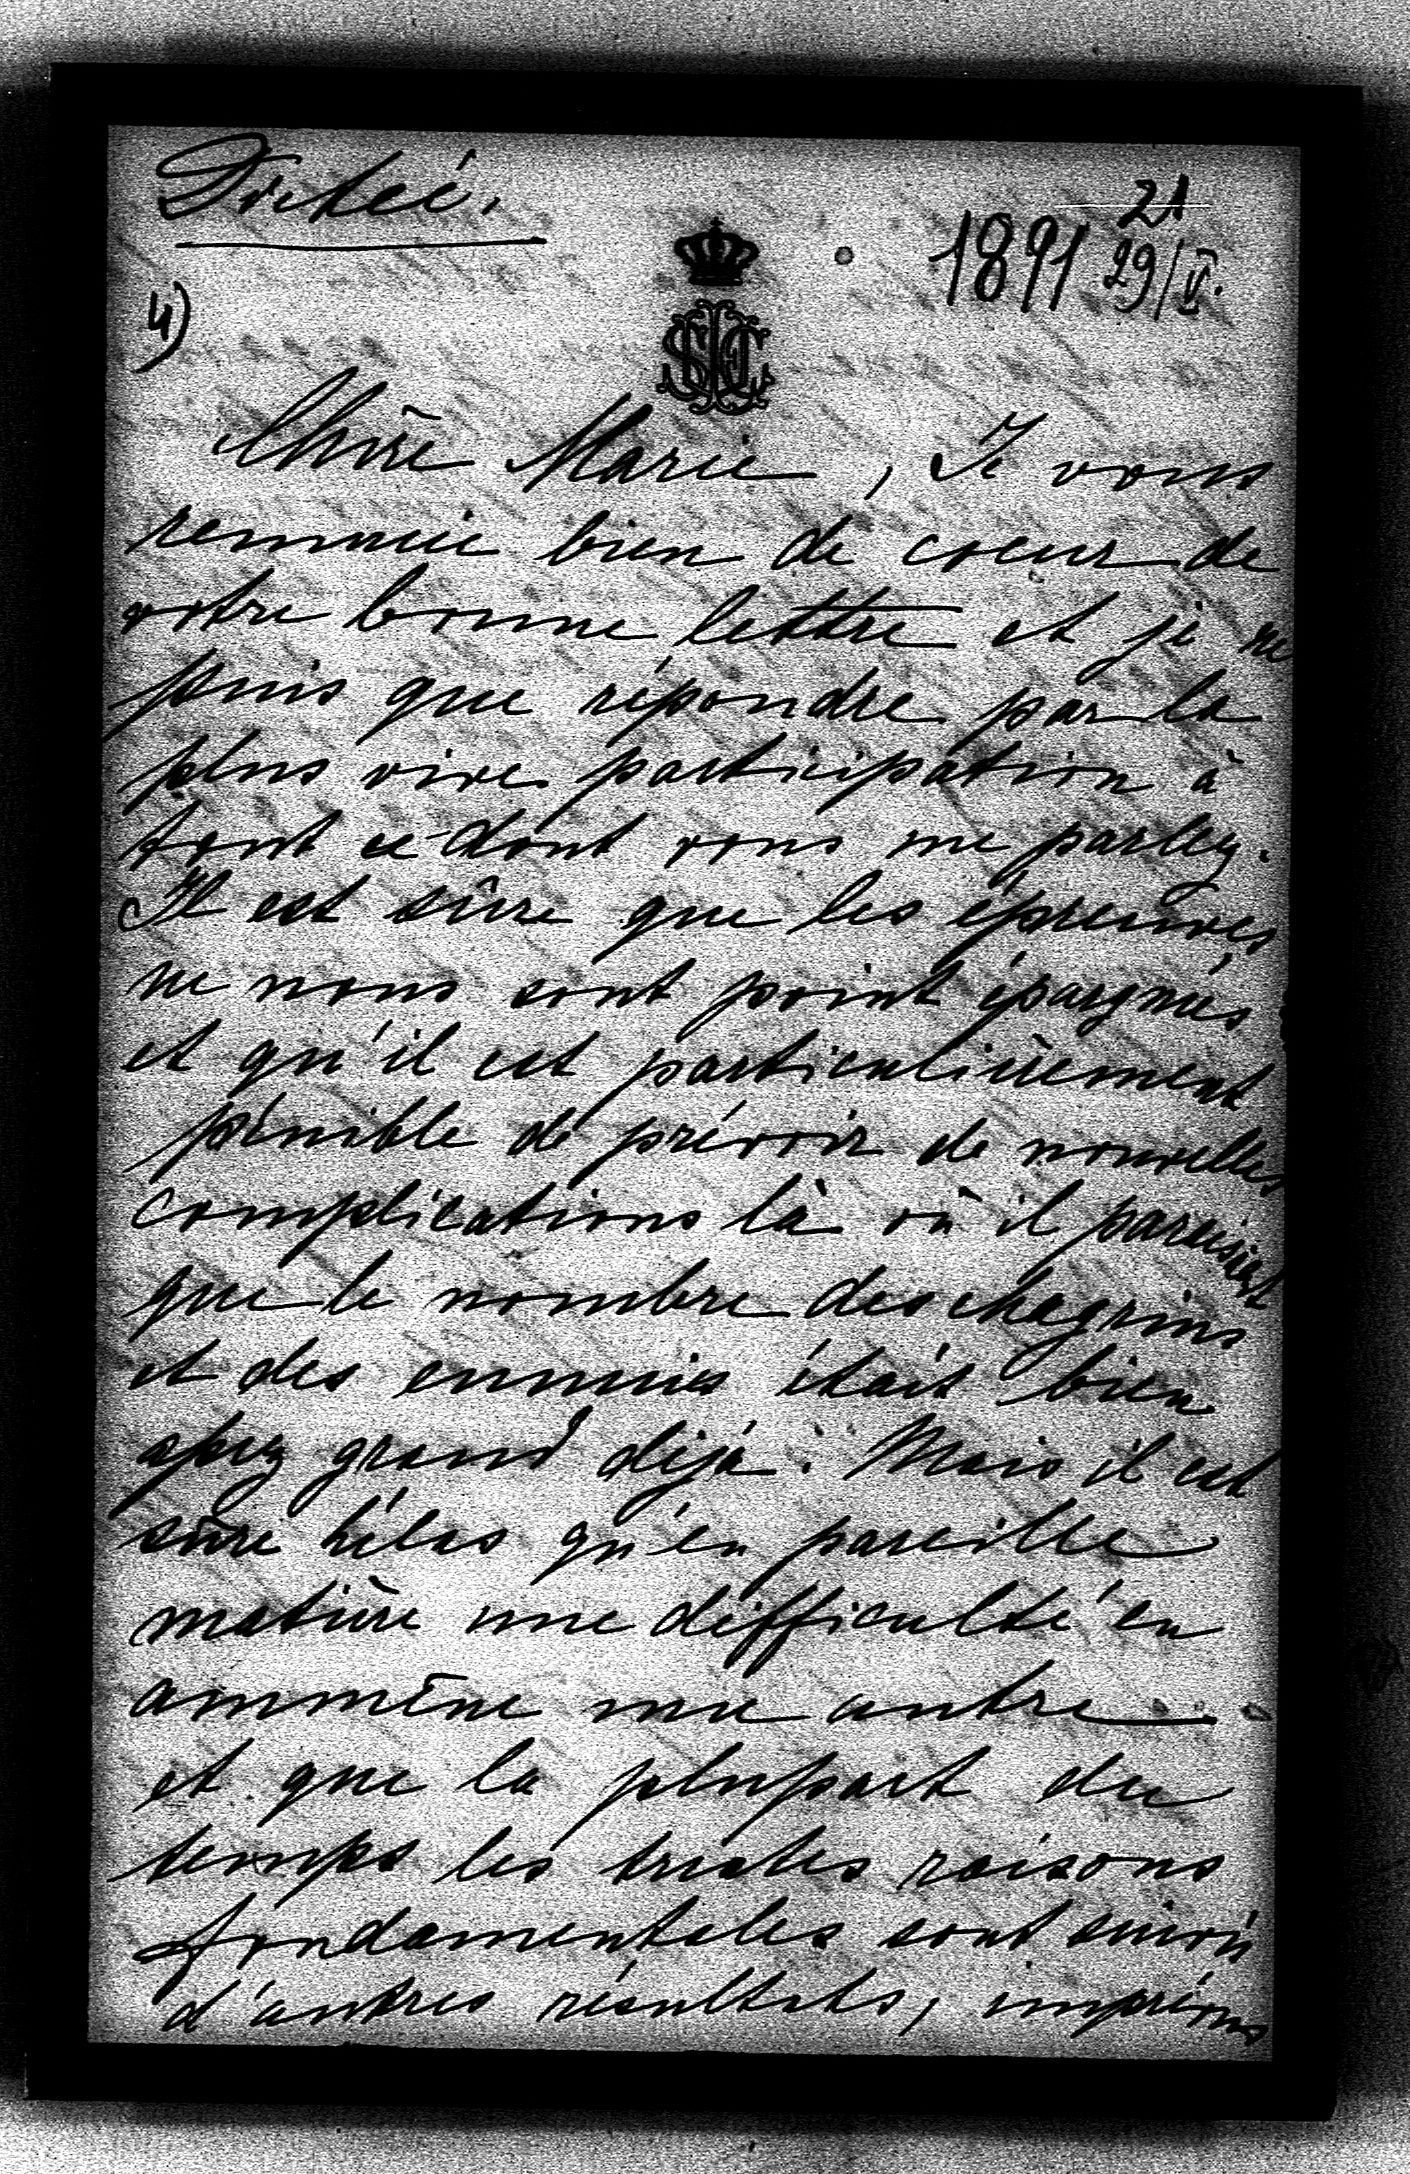 Dictée.
21
1891 29/V.
4)
Chère Marie, Je vous
remercie bien de coeur de
votre bonne lettre et je ne
puis que répondre par la
plus vive participation à
tout ce dont vous me parlez.
Il est sûre que les épreuves
ne nous sont point épargnés
et qu'il est particulièrement
pénible de prévoir de nouvelles
complications là où il paraissait
que le nombre des chagrins
et des ennuies était bien
assez grand déjà. Mais il est
sûre hélas qu'en pareille
matière une difficulté en
ammène une autre
et que la plupart du
temps les tristes raisons
fondamentales sont suivis
d'autres résultats, imprévus